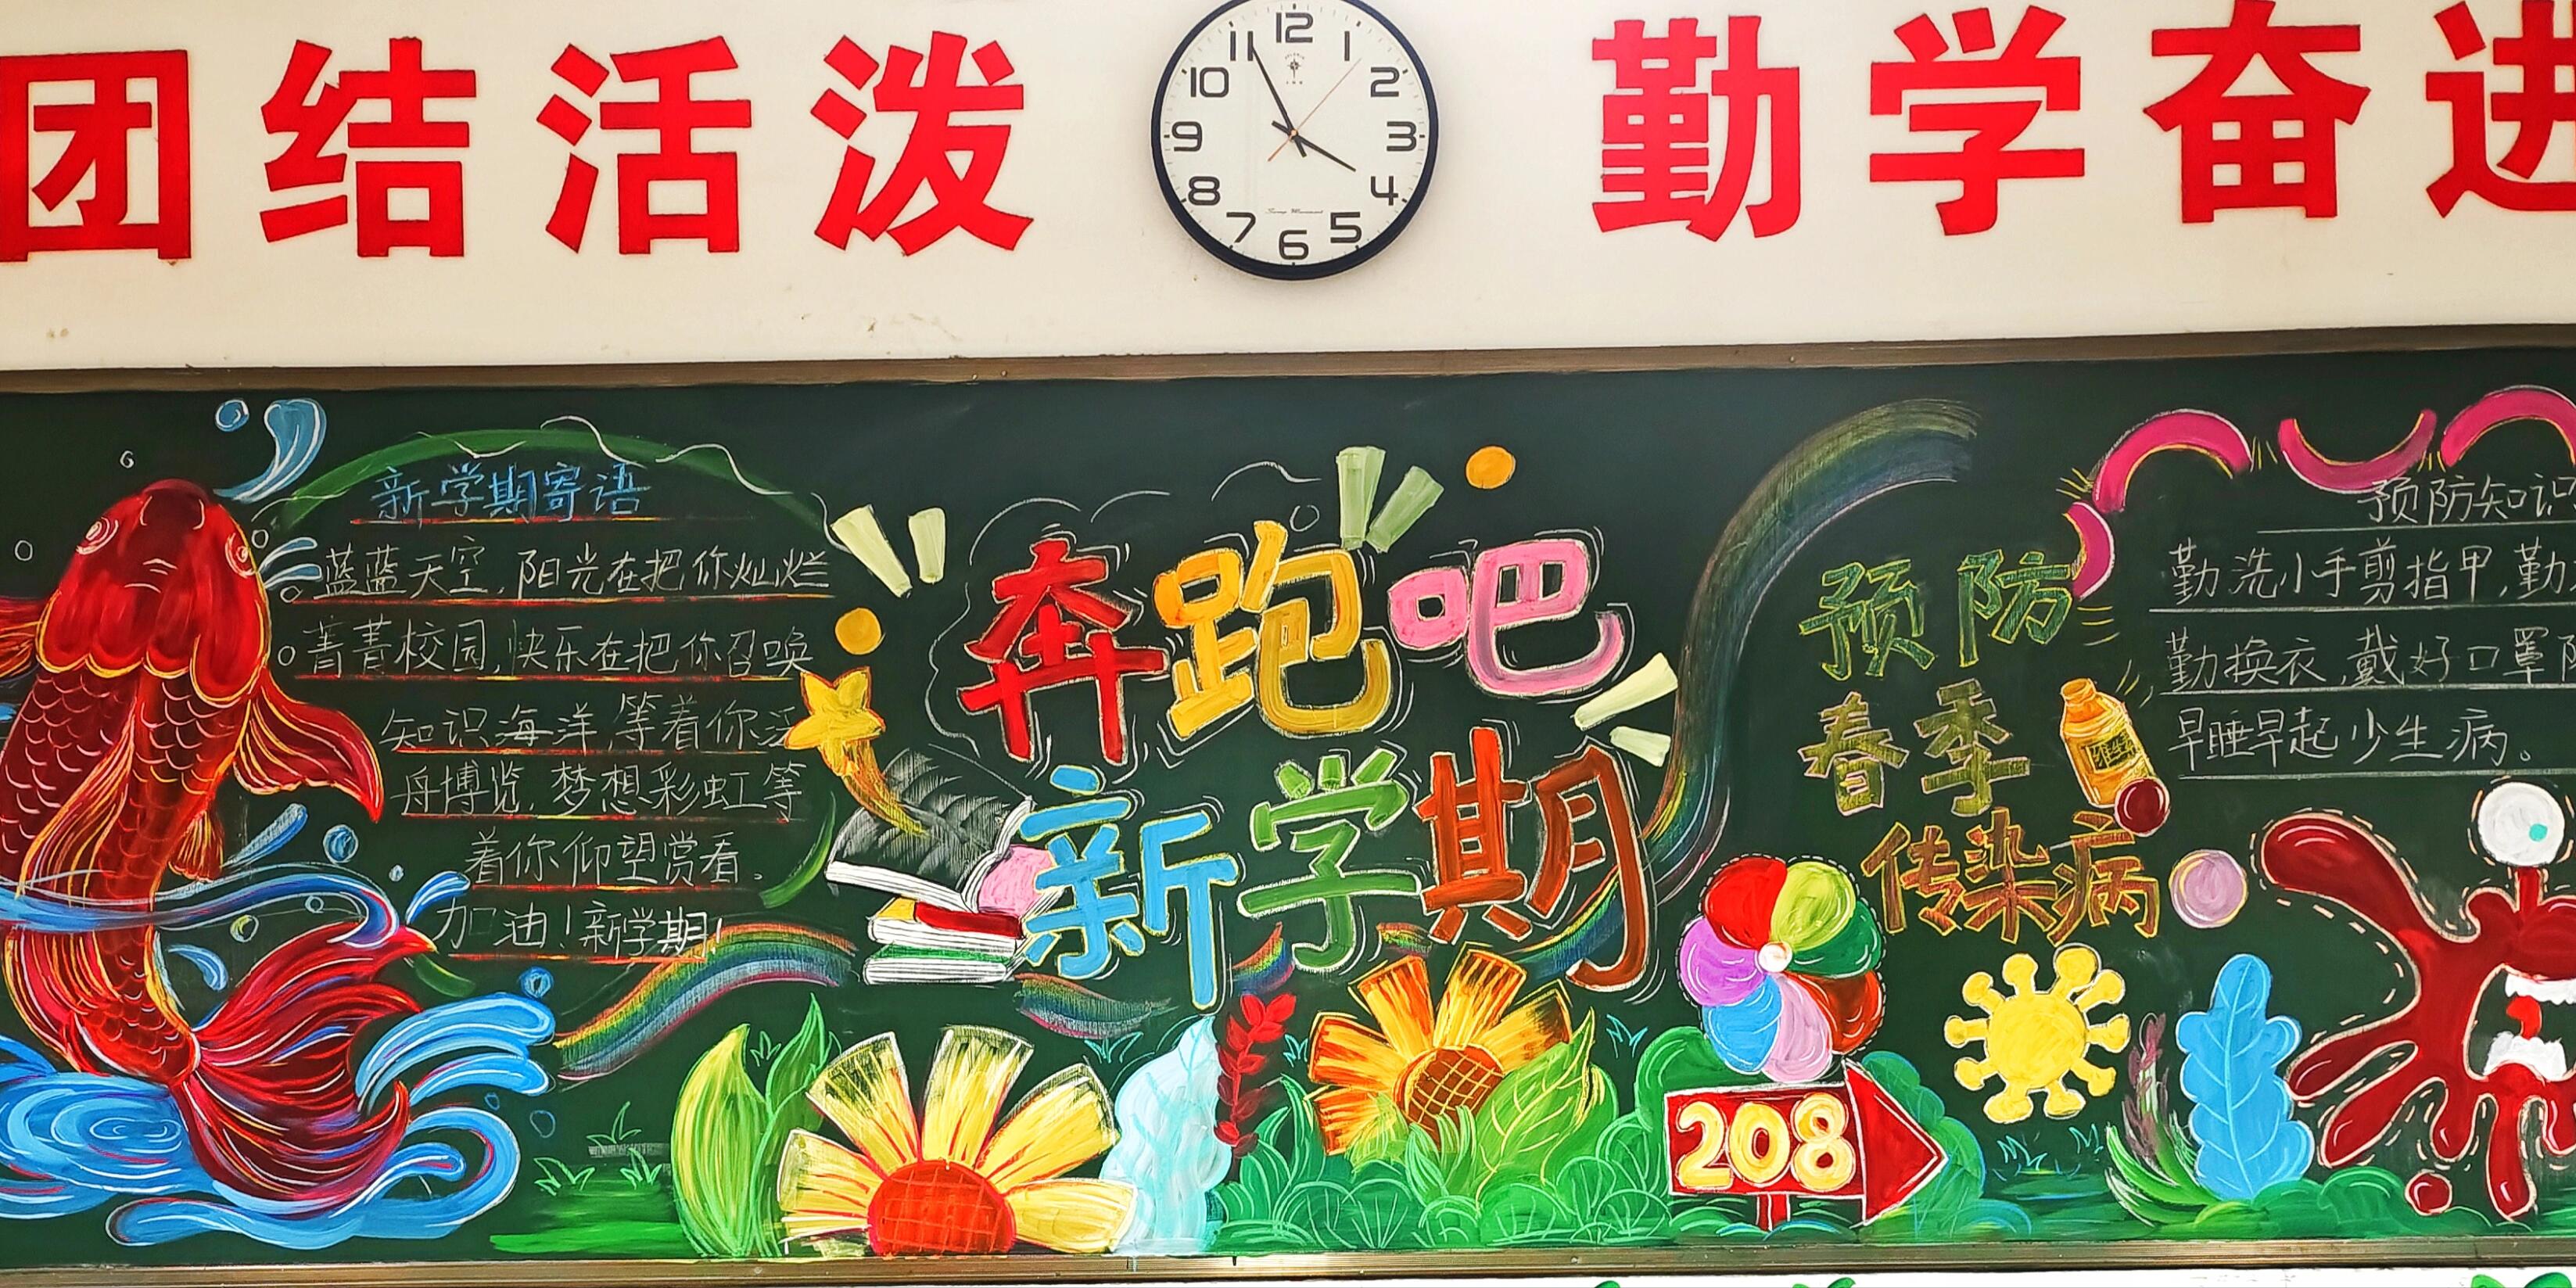 团结活泼
勤学奋进
12
1
2
3
4
5
6
7
8
9
10
11
新学期寄语
蓝蓝天空,阳光在把你灿烂
菁菁校园,快乐在把你召唤
知识海洋,等着你泛
舟博览,梦想彩虹等
着你仰望赏看。
加油!新学期!
奔跑吧
新学期
208
预防
春季
传染病
预防知识
勤洗小手剪指甲,勤
勤换衣,戴好口罩防
早睡早起少生病。